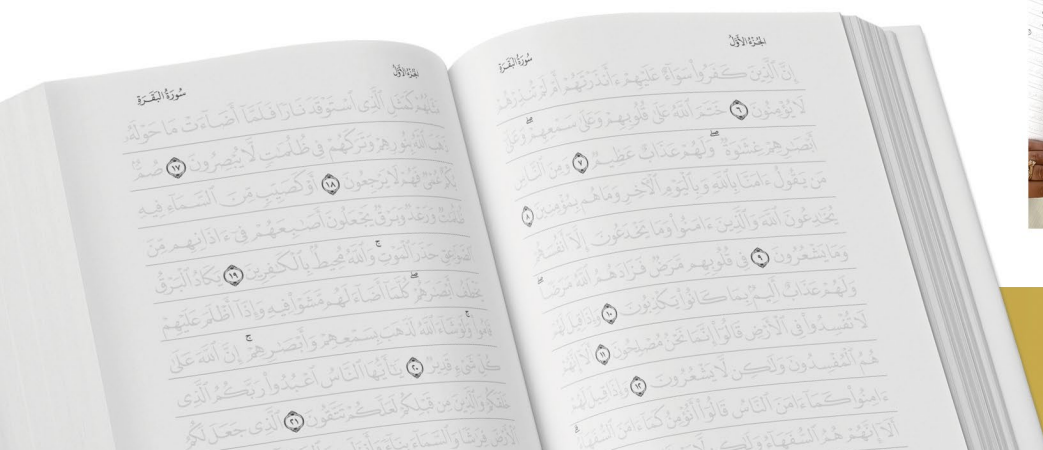 الجُزْءُ الأَوَّلُ سُورَةُ البَقَرَةِ
إِنَّ ٱلَّذِينَ كَفَرُوا۟ سَوَآءٌ عَلَيْهِمْ ءَأَنذَرْتَهُمْ أَمْ لَمْ تُنذِرْهُمْ
لَا يُؤْمِنُونَ ٦ خَتَمَ ٱللَّهُ عَلَىٰ قُلُوبِهِمْ وَعَلَىٰ سَمْعِهِمْ ۖ وَعَلَىٰ
أَبْصَـٰرِهِمْ غِشَـٰوَةٌ ۖ وَلَهُمْ عَذَابٌ عَظِيمٌ ٧ وَمِنَ ٱلنَّاسِ
مَن يَقُولُ ءَامَنَّا بِٱللَّهِ وَبِٱلْيَوْمِ ٱلْـَٔاخِرِ وَمَا هُم بِمُؤْمِنِينَ ٨
يُخَـٰدِعُونَ ٱللَّهَ وَٱلَّذِينَ ءَامَنُوا۟ وَمَا يَخْدَعُونَ إِلَّآ أَنفُسَهُمْ
وَمَا يَشْعُرُونَ ٩ فِى قُلُوبِهِم مَّرَضٌ فَزَادَهُمُ ٱللَّهُ مَرَضًا ۖ
وَلَهُمْ عَذَابٌ أَلِيمٌۢ بِمَا كَانُوا۟ يَكْذِبُونَ ١٠ وَإِذَا قِيلَ لَهُمْ
لَا تُفْسِدُوا۟ فِى ٱلْأَرْضِ قَالُوٓا۟ إِنَّمَا نَحْنُ مُصْلِحُونَ ١١ أَلَآ إِنَّهُمْ
هُمُ ٱلْمُفْسِدُونَ وَلَـٰكِن لَّا يَشْعُرُونَ ١٢ وَإِذَا قِيلَ لَهُمْ
ءَامِنُوا۟ كَمَآ ءَامَنَ ٱلنَّاسُ قَالُوٓا۟ أَنُؤْمِنُ كَمَآ ءَامَنَ ٱلسُّفَهَآءُ ۗ
أَلَآ إِنَّهُمْ هُمُ ٱلسُّفَهَآءُ وَلَـٰكِن لَّا
الجُزْءُ الأَوَّلُ سُورَةُ البَقَرَةِ
مَثَلُهُمْ كَمَثَلِ ٱلَّذِى ٱسْتَوْقَدَ نَارًا فَلَمَّآ أَضَآءَتْ مَا حَوْلَهُۥ
ذَهَبَ ٱللَّهُ بِنُورِهِمْ وَتَرَكَهُمْ فِى ظُلُمَـٰتٍ لَّا يُبْصِرُونَ ١٧ صُمٌّۢ
بُكْمٌ عُمْىٌ فَهُمْ لَا يَرْجِعُونَ ١٨ أَوْ كَصَيِّبٍ مِّنَ ٱلسَّمَآءِ فِيهِ
ظُلُمَـٰتٌ وَرَعْدٌ وَبَرْقٌ يَجْعَلُونَ أَصَـٰبِعَهُمْ فِىٓ ءَاذَانِهِم مِّنَ
ٱلصَّوَٰعِقِ حَذَرَ ٱلْمَوْتِ ۚ وَٱللَّهُ مُحِيطٌۢ بِٱلْكَـٰفِرِينَ ١٩ يَكَادُ ٱلْبَرْقُ
يَخْطَفُ أَبْصَـٰرَهُمْ ۖ كُلَّمَآ أَضَآءَ لَهُم مَّشَوْا۟ فِيهِ وَإِذَآ أَظْلَمَ عَلَيْهِمْ
قَامُوا۟ ۚ وَلَوْ شَآءَ ٱللَّهُ لَذَهَبَ بِسَمْعِهِمْ وَأَبْصَـٰرِهِمْ ۚ إِنَّ ٱللَّهَ عَلَىٰ
كُلِّ شَىْءٍ قَدِيرٌ ٢٠ يَـٰٓأَيُّهَا ٱلنَّاسُ ٱعْبُدُوا۟ رَبَّكُمُ ٱلَّذِى
خَلَقَكُمْ وَٱلَّذِينَ مِن قَبْلِكُمْ لَعَلَّكُمْ تَتَّقُونَ ٢١ ٱلَّذِى جَعَلَ لَكُمُ
ٱلْأَرْضَ فِرَٰشًا وَٱلسَّمَآءَ بِنَآءً وَأَنزَلَ